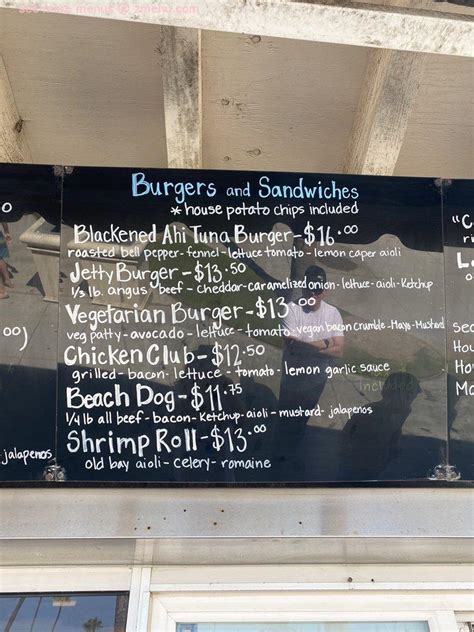 see more menus @ zmenu.com
Burgers and Sandwiches
* house potato chips included
Blackened Ahi Tuna Burger-$16.00
roasted bell pepper-fennel-lettuce tomato-lemon caper aioli
Jetty Burger-$13.50
1/3 lb. angus beef-cheddar-caramelized onion-lettuce-aioli-Ketchup
Vegetarian Burger-$13.00
veg patty-avocado-lettuce-tomato-vegan bacon crumble-Mayo-Mustard
Chicken Club-$12.50
grilled-bacon-lettuce-tomato-lemon garlic sauce
Included
Beach Dog-$11.75
1/4 lb all beef-bacon-Ketchup-aioli-mustard-jalapenos
Shrimp Roll-$13.00
old bay aioli-celery-romaine
jalapenos